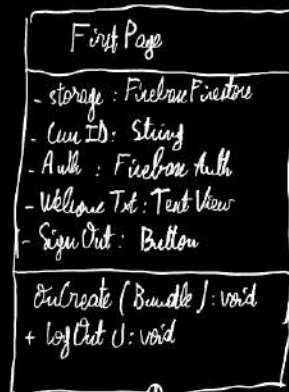 First Page
- storage : Firebase Firestore
- Curr ID : String
- Auth : Firebase Auth
- Welcome Txt : Text View
- Sign Out : Button
OnCreate (Bundle) : void
+ Log Out () : void